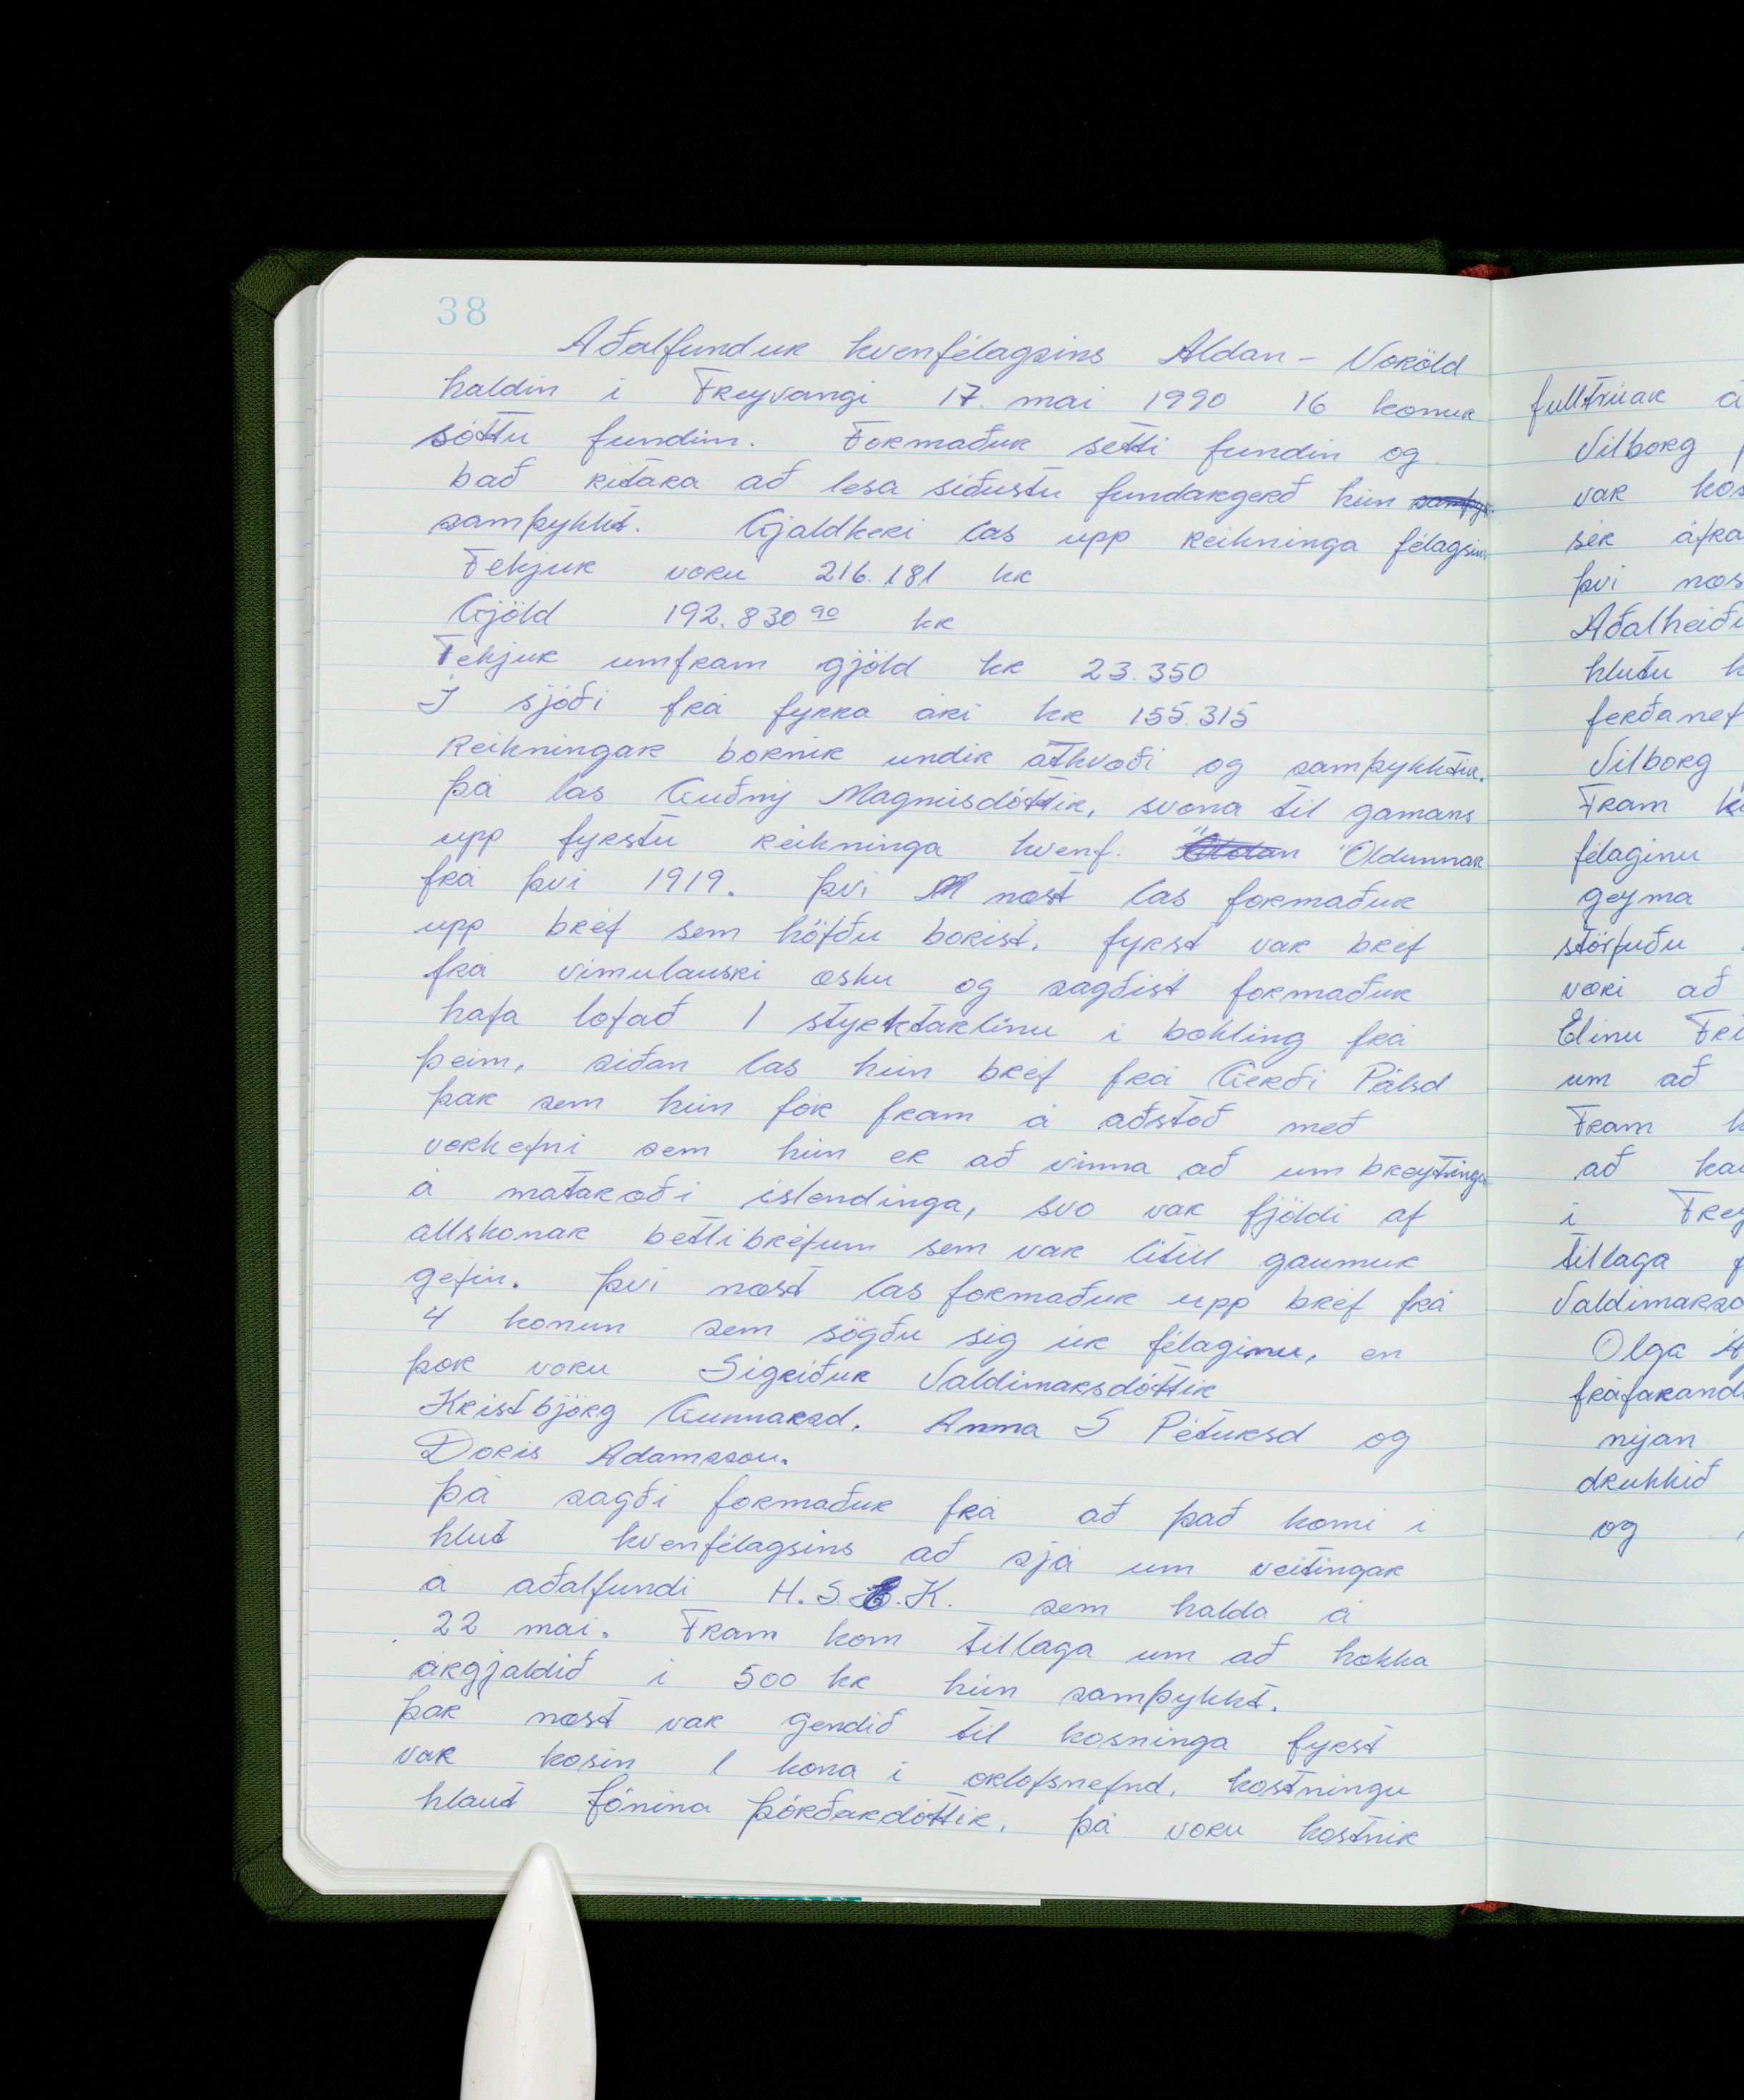 38
Aðalfundur kvenfélagsins Aldan - Voröld
haldin i Freyvangi 17. mai 1990 16 konur
sóttu fundinn. Formaður setti fundin og
bað ritara að lesa siðustu fundargerð hún
samþykkt. Gjaldkeri las upp reikninga félagsins
Tekjur voru 216.181 kr
Gjöld 192.830 90 kr
Tekjur umfram gjöld kr 23.350
Í sjóði frá fyrra ári kr 155.315
Reikningar bornir undir atkvæði og samþykktir.
þá las Guðný Magnúsdóttir, svona til gamans
upp fyrstu reikninga kvenf. Öldunnar
frá þvi 1919. þvi næst las formaður
upp bréf sem höfðu borist. fyrst var bréf
frá vimulausri æsku og sagðist formaður
hafa lofað 1 styrktarlinu i bækling frá
þeim, siðan las hún bréf frá Gerði Pálsd
þar sem hún fór fram á aðstoð með
verkefni sem hún er að vinna að um breytingar
á mataræði islendinga, svo var fjöldi af
allskonar betlibréfum sem var litill gaumur
gefin. þvi næst las formaður upp bréf frá
4 konun sem sögðu sig úr félaginu, en
þær voru Sigriður Valdimarsdóttir
Kristbjörg Gunnarsd. Anna S Pétursd og
Doris Adamsson.
þá sagði formaður frá að það komi i
hlut kvenfélagsins að sjá um veitingar
á aðalfundi H.S.Þ.K. sem halda á
22 mai. Fram kom tillaga um að hækka
árgjaldið i 500 kr hún samþykkt.
þar næst var gendið til kosninga fyrst
var kosin 1 kona i orlofsnefnd, kostningu
hlaut Jónina þórðardóttir. þá voru kostnir
fulltrúar á
Vilborg
var kos
sér áfra
þvi næs
Aðalheiðu
hlutu k
ferðanef
Vilborg
Fram k
félaginu
geyma
störfuðu
væri að
Elinu Fri
um að
Fram k
að ka
i Frey
tillaga f
Valdimarsd
Olga Á
fráfarand
nýjan
drukkið
og